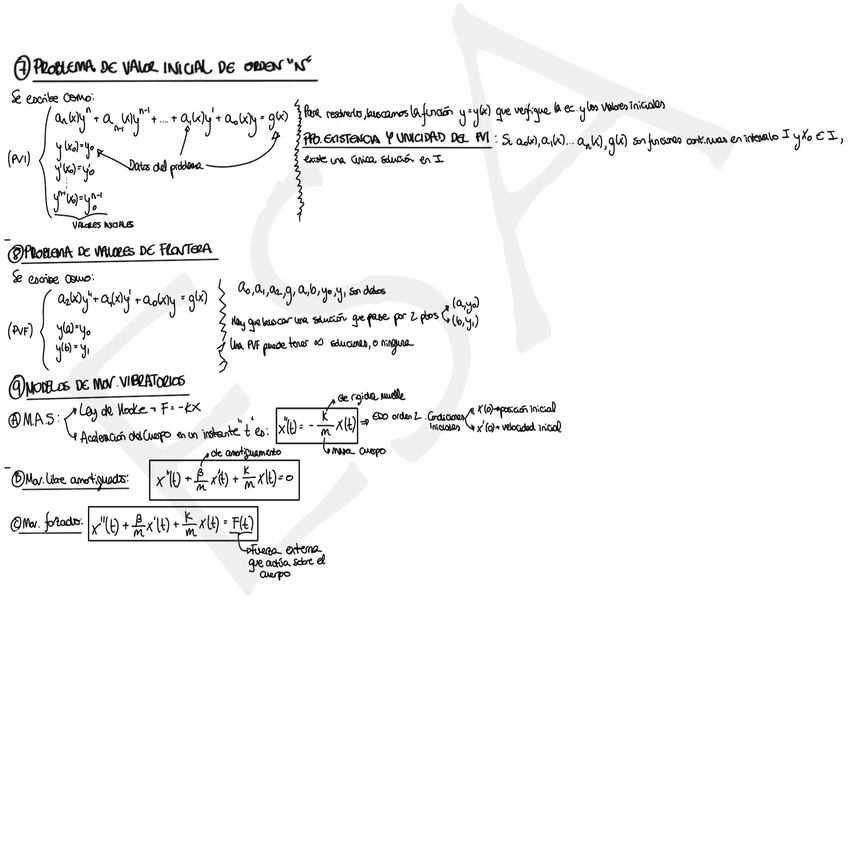 ⑦ PROBLEMA DE VALOR INICIAL DE ORDEN "N"
Se escribe como:
(PVI)
aₙ(x)yⁿ + aₙ₋₁(x)yⁿ⁻¹ + .... + a₁(x)y' + a₀(x)y = g(x)
y(x₀)=y₀
y'(x₀)=y'₀
yⁿ⁻¹(x₀)=y₀ⁿ⁻¹
VALORES INICIALES
Datos del problema
Para resolverlo, buscamos la función y=y(x) que verifique la ec. y los valores iniciales
EXISTENCIA Y UNICIDAD DEL PVI: Si a₀(x), a₁(x)... aₙ(x), g(x) son funciones continuas en intervalo I y x₀ ∈ I,
existe una única solución en I
⑧ PROBLEMA DE VALORES DE FRONTERA
Se escribe como:
(PVF)
a₂(x)y'' + a₁(x)y' + a₀(x)y = g(x)
y(a)=y₀
y(b)=y₁
a₀, a₁, a₂, g, a, b, y₀, y₁ son datos
Hay que buscar una solución que pase por 2 ptos (a,y₀)
(b,y₁)
Una PVF puede tener ∞ soluciones, o ninguna
⑨ MODELOS DE MOV. VIBRATORIOS
Ⓐ M.A.S:
Ley de Hooke → F = -kx
Aceleración del cuerpo en un instante "t" es: x''(t) = - k/m x(t) ⇒ EDO orden 2. Condiciones iniciales
cte rigidez muelle
masa cuerpo
x(0)→posición inicial
x'(0)→velocidad inicial
Ⓑ Mov. libre amortiguado: x''(t) + β/m x'(t) + k/m x(t) = 0
cte amortiguamiento
Ⓒ Mov. forzado: x''(t) + β/m x'(t) + k/m x(t) = F(t)
Fuerza externa
que actúa sobre el
cuerpo
ESA